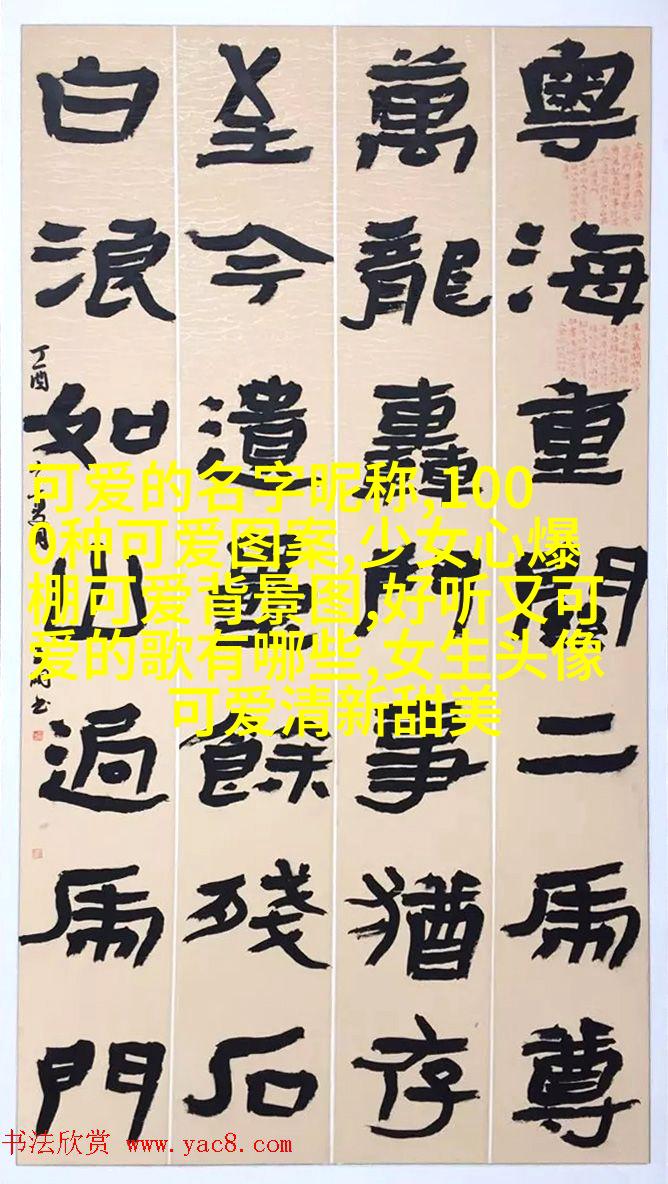 粤海重關二虎尊
萬龍轟鬥事猶存
至今遺壘餘殘石
白浪如山過虎門
丁酉
可爱的名字昵称,100
0种可爱图案,少女心爆
棚可爱背景图,好听又可
爱的歌有哪些,女生头像
可爱清新甜美
书法欣赏 www.yac8.com